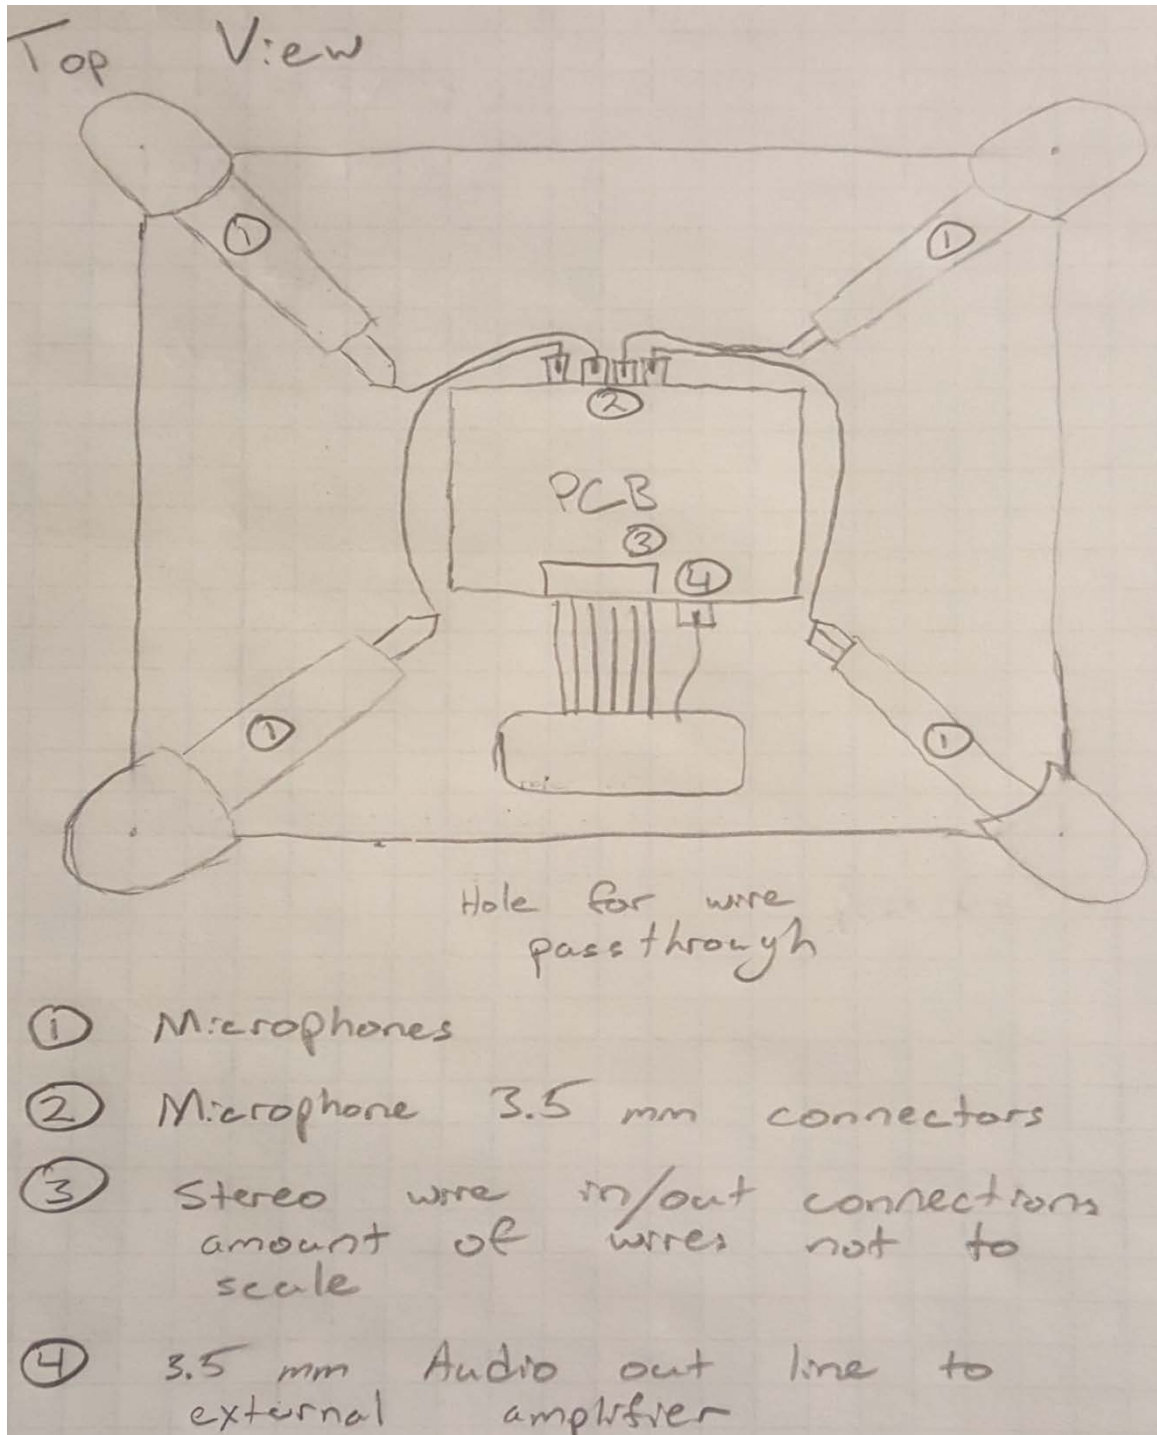 Top View
①
①
②
PCB
③
④
①
①
Hole for wire
passthrough
① Microphones
② Microphone 3.5 mm connectors
③ Stereo wire in/out connections
amount of wires not to
scale
④ 3.5 mm Audio out line to
external amplifier